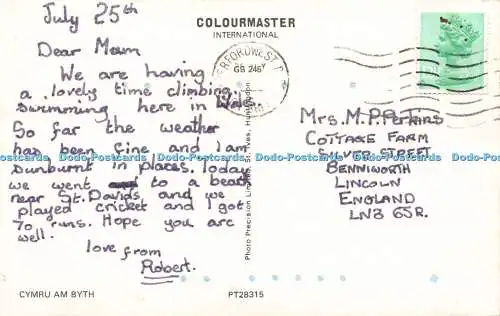 July 25th
COLOURMASTER
INTERNATIONAL
Dear Mum
We are having
a lovely time climbing,
swimming here in Wales
So far the weather
has been fine and I am
sunburnt in places. Today
we went to a beach
near St. Davids and we
played cricket and I got
70 runs. Hope you are
well.
love from
Robert.
Mrs. M. P. Perkins
COTTAGE FARM
SILVER STREET
BENNIWORTH
LINCOLN
ENGLAND
LN3 6SR.
Photo Precision Limited, St. Ives, Huntingdon
Dodo-Postcards Dodo-Postcards Dodo-Postcards Dodo-Postcards Dodo-Postcards
CYMRU AM BYTH
PT28315